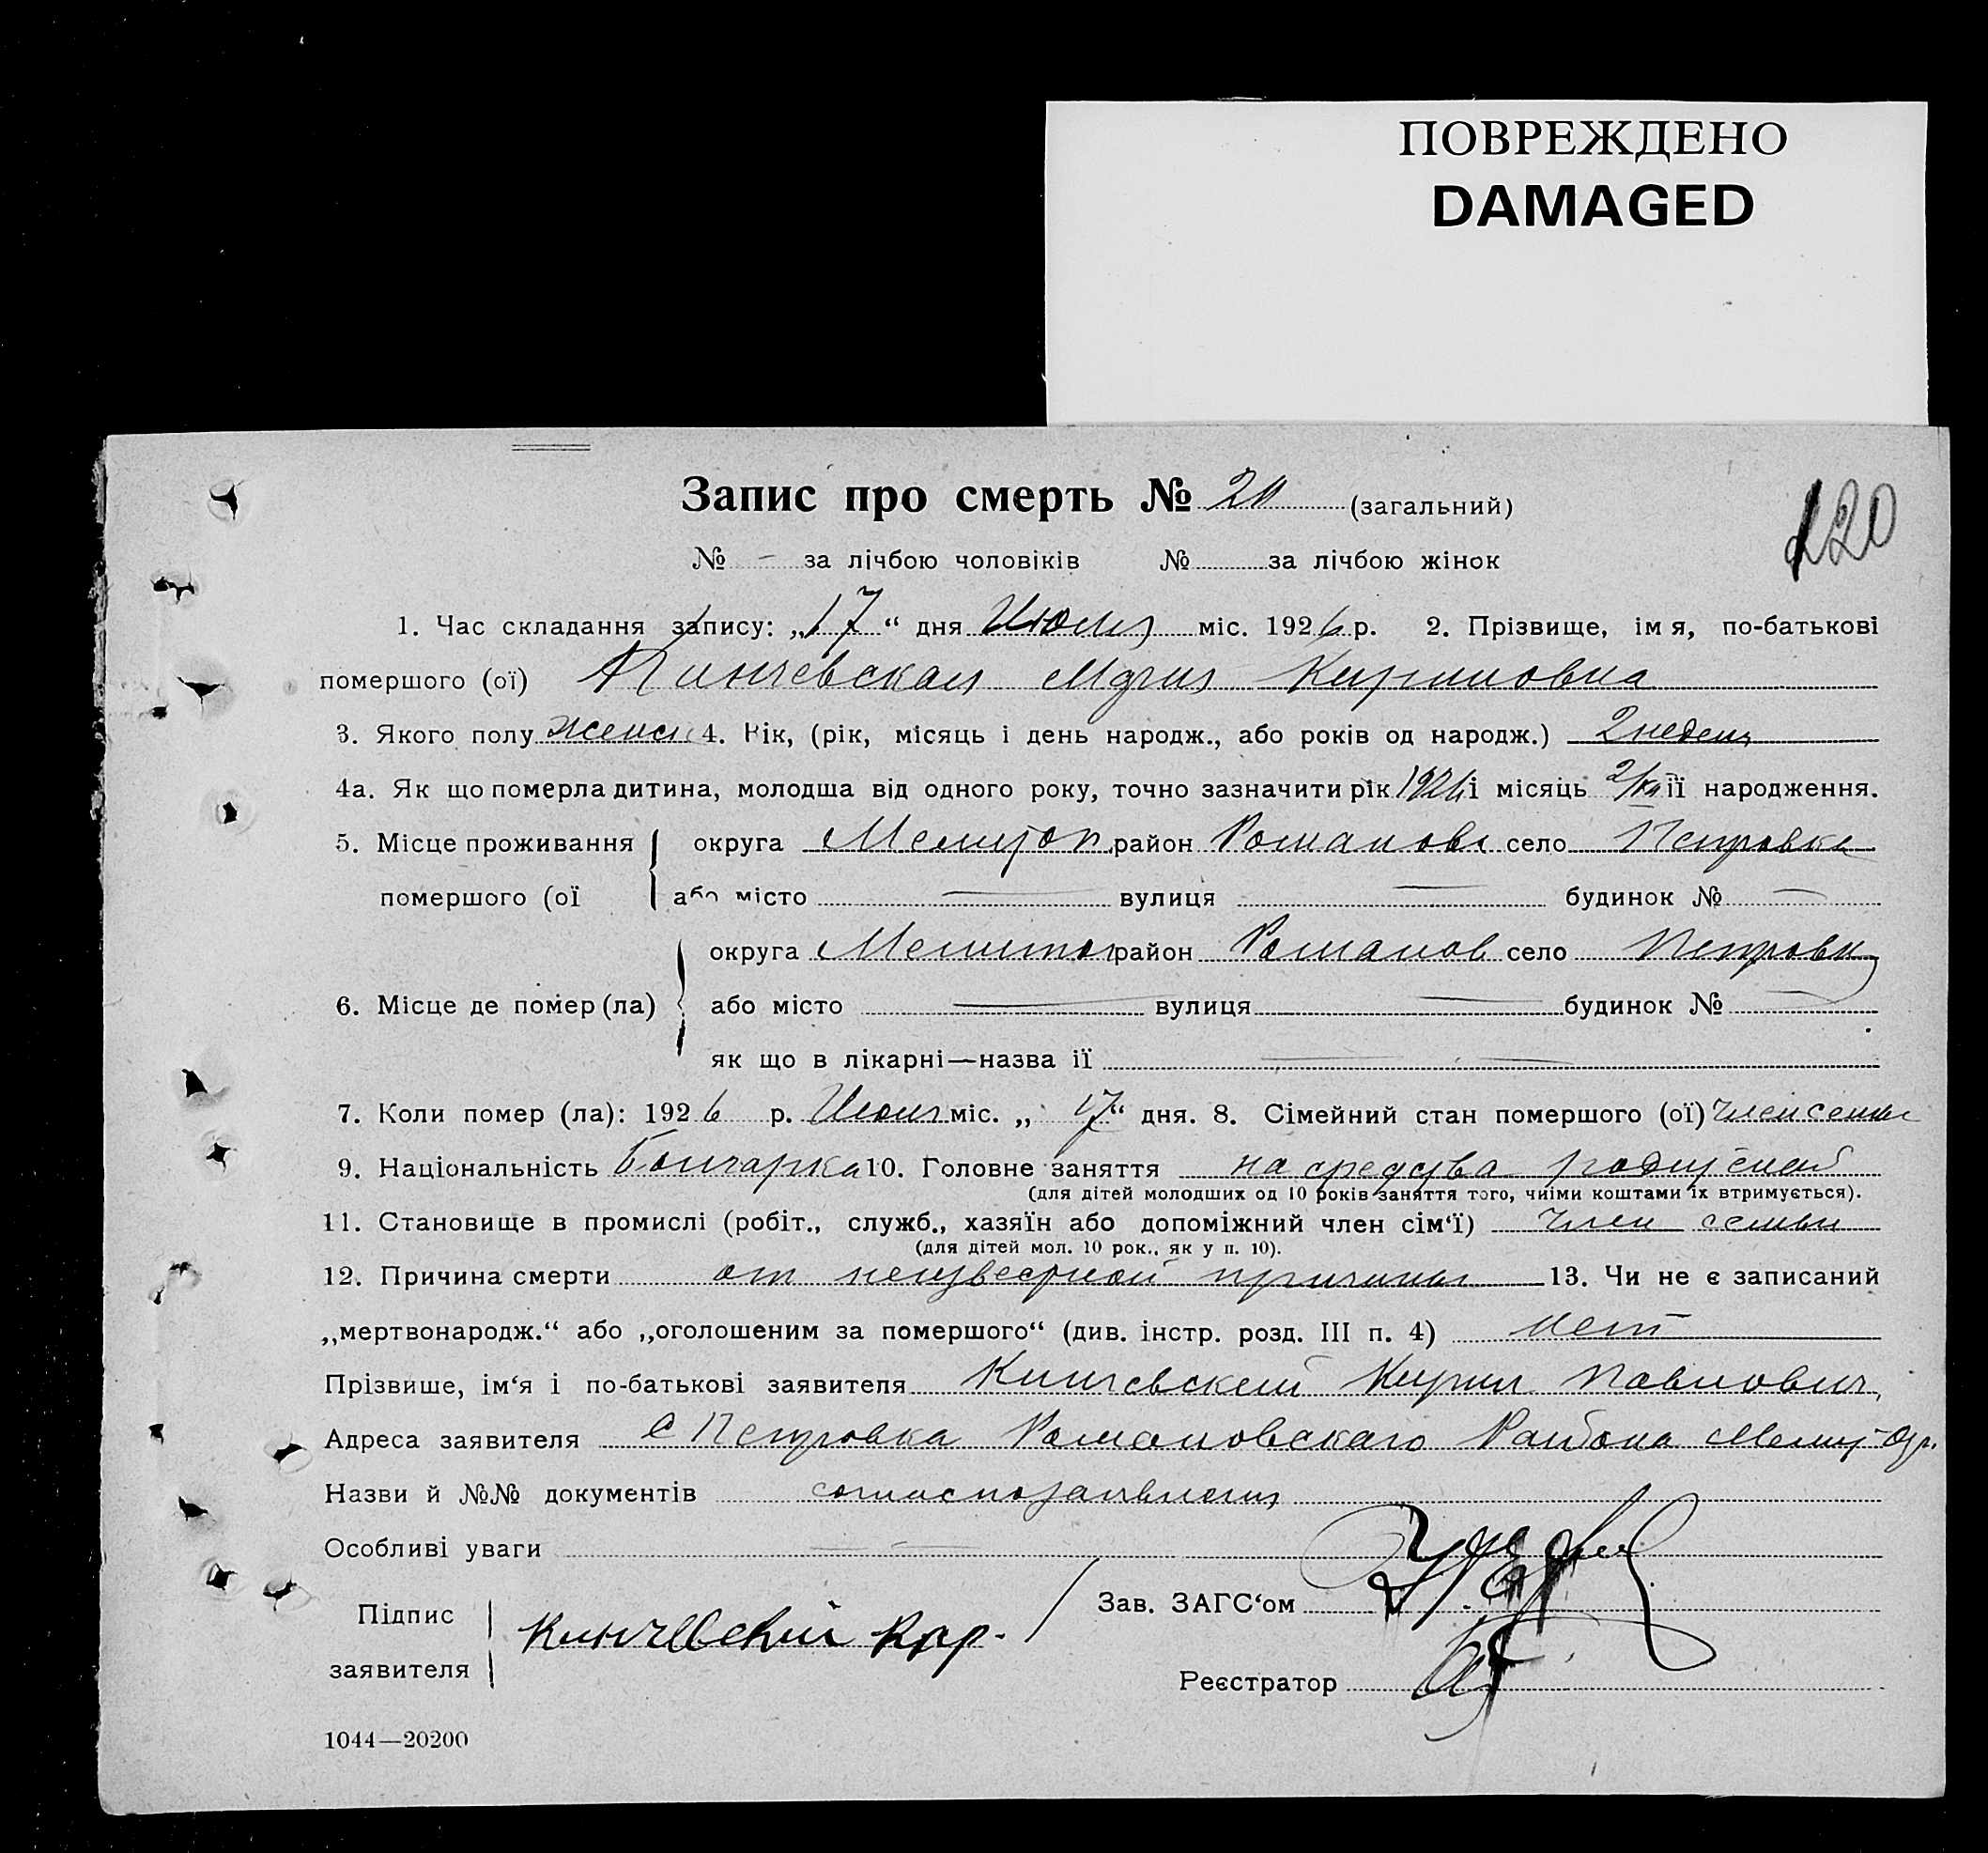 ПОВРЕЖДЕНО
DAMAGED
Запис про смерть № 20 (загальний)
120
№ – за лічбою чоловіків № за лічбою жінок
1. Час складання запису: „17“ дня Июля міс. 1926 р. 2. Прізвище, імя, по-батькові
помершого (ої) Кинчевская Кириловна
3. Якого полу женск 4. Вік, (рік, місяць і день народж., або років од народж.) 2 недели
4а. Як що померла дитина, молодша від одного року, точно зазначити рік 1926 і місяць її народження.
5. Місце проживання округа Мелитоп район Романовс село Петровка
помершого (ої або місто — вулиця — будинок № —
округа Мелитоп район Романов село Петровка
6. Місце де помер (ла) або місто — вулиця — будинок № —
як що в лікарні—назва її —
7. Коли помер (ла): 1926 р. Июля міс. „17“ дня. 8. Сімейний стан помершого (ої) член семьи
9. Національність Бончарка 10. Головне заняття на средства родителей
(для дітей молодших од 10 років заняття того, чиїми коштами їх втримується).
11. Становище в промислі (робіт., служб., хазяїн або допоміжний член сім‘ї) Член семьи
(для дітей мол. 10 рок., як у п. 10).
12. Причина смерти от неизвестной причины 13. Чи не є записаний
„мертвонародж.“ або „оголошеним за помершого“ (див. інстр. розд. III п. 4) нет
Прізвише, ім‘я і по-батькові заявителя Кинчевский Кирил Павлович
Адреса заявителя с Петровка Романовскаго Района Мелит Окр.
Назви й №№ документів согласно заявления
Особливі уваги —
Підпис
заявителя Кинчевский Кир.
Зав. ЗАГС‘ом
Реєстратор
1044—20200